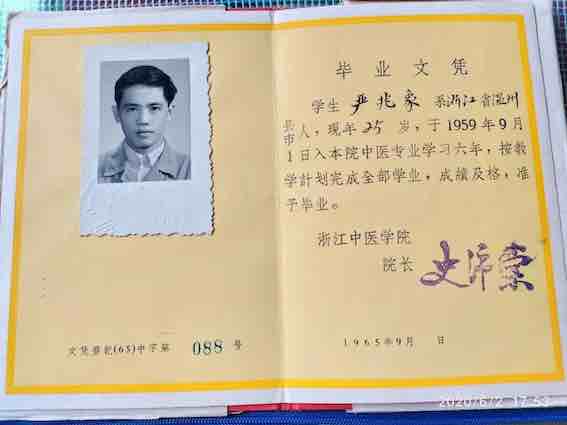 毕业文凭
学生 严兆象 系浙江省温州
县市人，现年25岁，于1959年9月
1日入本院中医专业学习六年，按教
学计划完成全部学业，成绩及格，准
予毕业。
浙江中医学院
院长
1965年9月 日
文凭登记(65)中字第 088 号
2020/6/2 17:53